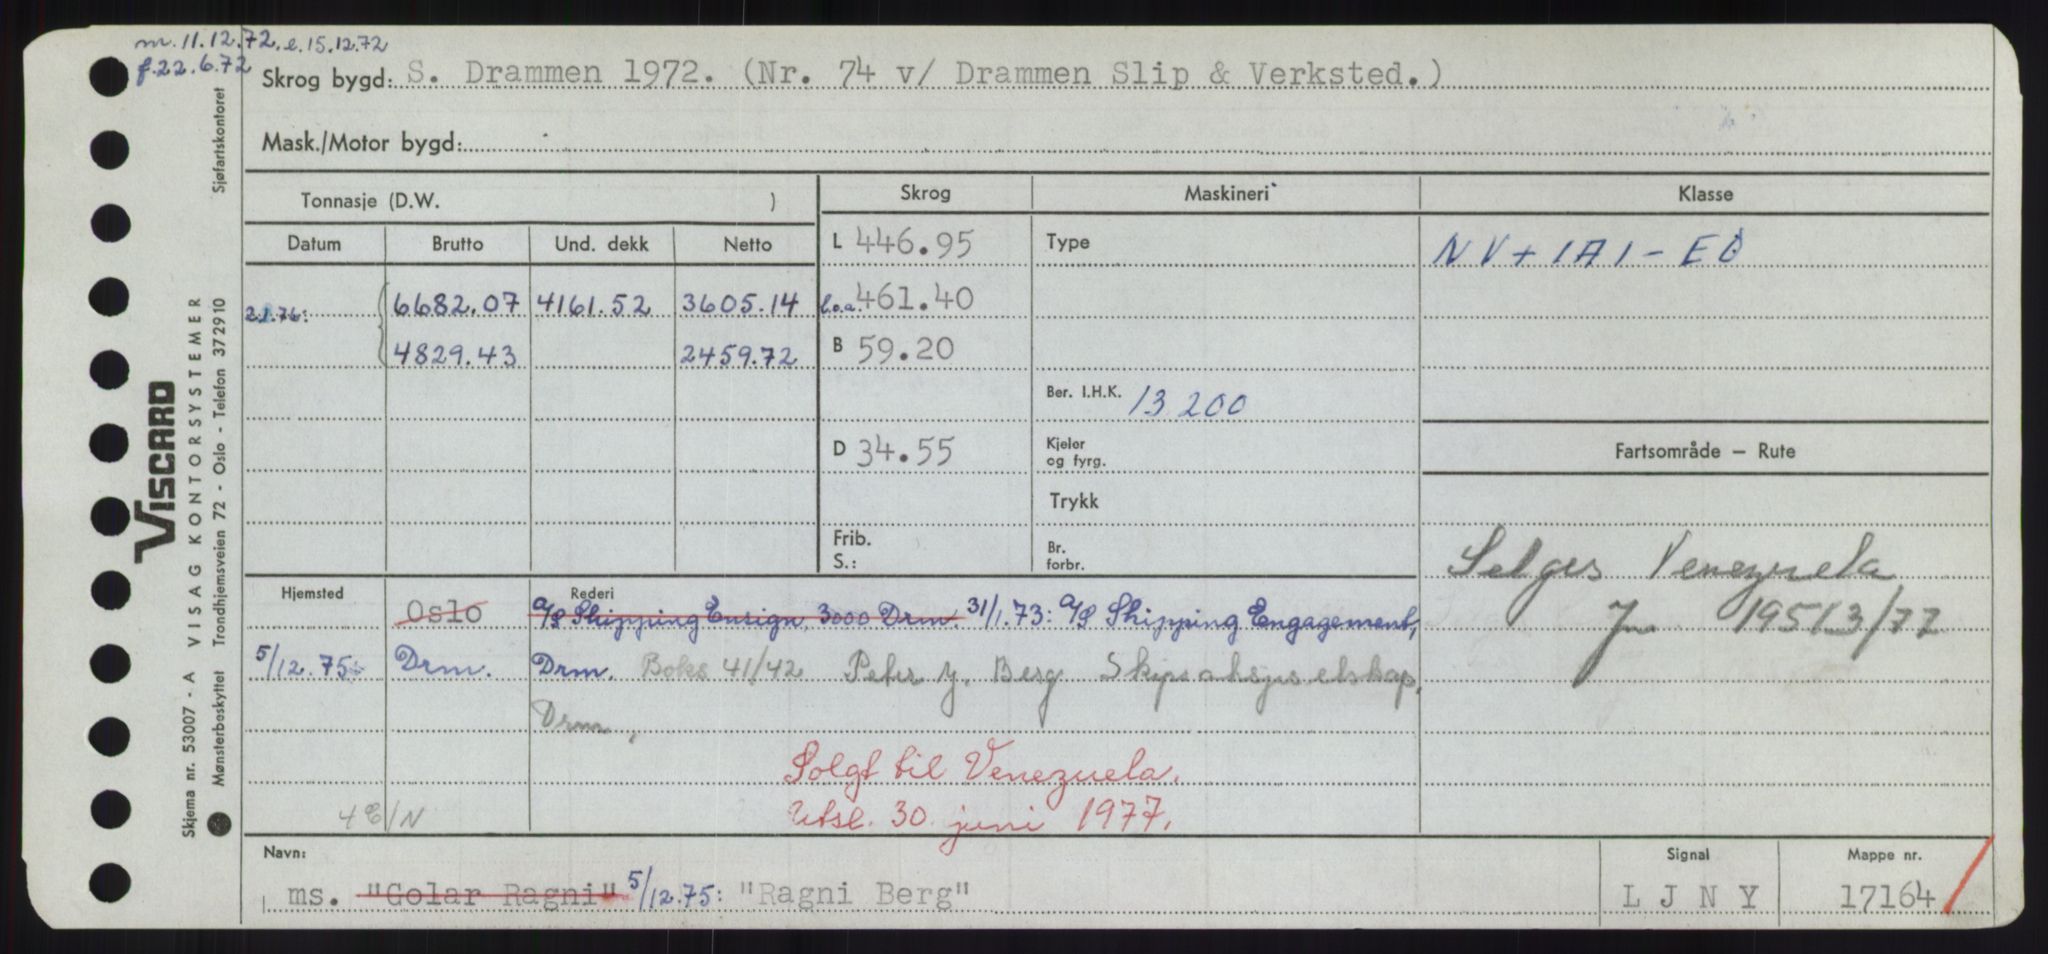 m. 11.12.72. e. 15.12.72
f. 22.6.72
Skrog bygd: S. Drammen 1972. (Nr. 74 v/ Drammen Slip & Verksted.)
Mask./Motor bygd:
Tonnasje (D.W. )
Skrog Maskineri Klasse
Datum Brutto Und. dekk Netto
L 446.95 Type NV + 1A1 - EO
2.1.76: 6682.07 4161.52 3605.14 l.o.a. 461.40
4829.43 2459.72 B 59.20
Ber. I.H.K. 13 200
D 34.55 Kjeler og fyrg. Fartsområde – Rute
Trykk
Frib. S.: Br. forbr.
Selges Venezuela
195 13/77
Hjemsted Rederi
Oslo A/S Shipping Ensign, 3000 Drm. 31/1.73: A/S Shipping Engagement,
5/12.75: Drm. Drm. Boks 41/42 Peter J. Berg Skipsaksjeselskap,
Drm,
Solgt til Venezuela.
Utsl. 30. juni 1977.
4 E/N
Navn: Signal Mappe nr.
ms. "Golar Ragni" 5/12.75: "Ragni Berg" L J N Y 17164
Sjøfartskontoret
VISCARD
VISAG KONTORSYSTEMER
Trondhjemsveien 72 - Oslo - Telefon 372910
Skjema nr. 53007 - A
Mønsterbeskyttet